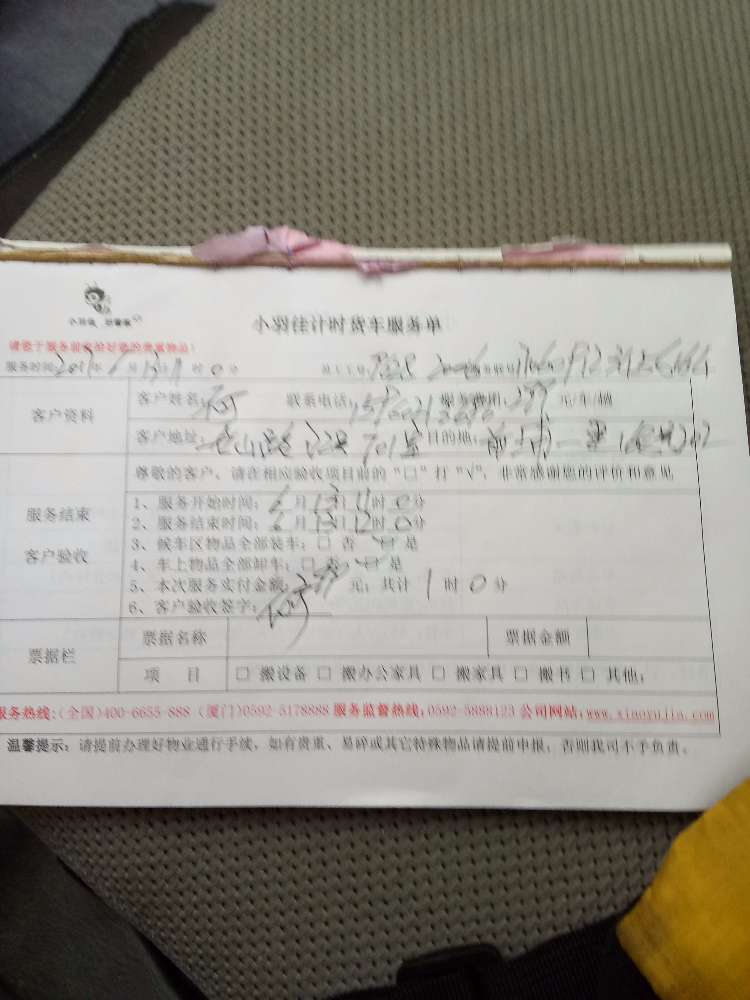 小羽佳计时货车服务单
服务时间:2017年6月13日11时0分
客户资料
客户姓名:何 联系电话: 服务费用: 元/车/趟
客户地址: 701室 目的地:
服务结束
客户验收
尊敬的客户,请在相应验收项目前的“□”打“√”,非常感谢您的评价和意见
1、服务开始时间:6月13日11时0分
2、服务结束时间:6月13日12时0分
3、候车区物品全部装车:□ 否 □ 是
4、车上物品全部卸车:□ 否 □ 是
5、本次服务实付金额: 元;共计 1 时 0 分
6、客户验收签字:何
票据栏
票据名称 票据金额
项 目 □ 搬设备 □ 搬办公家具 □ 搬家具 □ 搬书 □ 其他:
服务热线:(全国)400-6655-888 (厦门)0592-5178888 服务监督热线:0592-5888123 公司网站:www.xiaoyujia.com
温馨提示:请提前办理好物业通行手续,如有贵重、易碎或其它特殊物品请提前申报,否则我司不予负责。